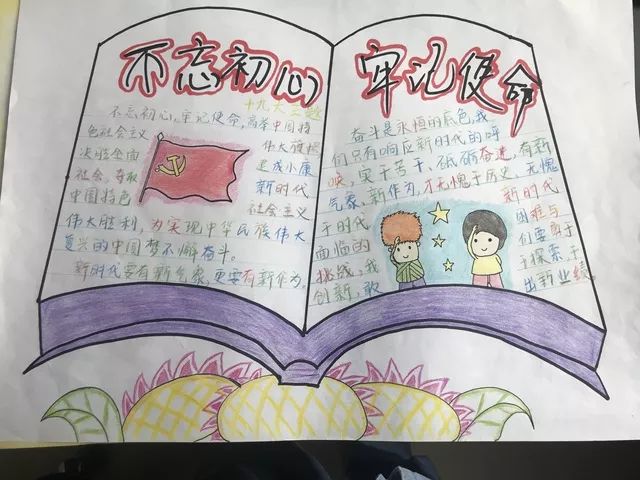 不忘初心
十九大主题
不忘初心，牢记使命，高举中国特
色社会主义 伟大旗帜
决胜全面 建成小康
社会，夺取 新时代
中国特色 社会主义
伟大胜利，为实现中华民族伟大
复兴的中国梦不懈奋斗。
新时代要有新气象，更要有新作为。
牢记使命
奋斗是永恒的底色，我
们只有响应新时代的呼
唤，实干苦干、砥砺奋进，有新
气象、新作为，才无愧于历史、无愧
于时代 新时代
面临的 困难与
挑战，我 们要勇于
创新，敢 于探索，干
出新业绩